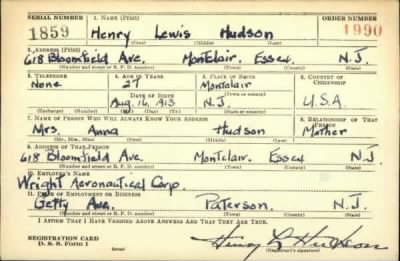 SERIAL NUMBER 1. NAME (Print) ORDER NUMBER
1859 Henry Lewis Hudson 1990
(First) (Middle) (Last)
2. ADDRESS (Print)
618 Bloomfield Ave. Montclair. Essex N.J.
(Number and street or R. F. D. number) (Town) (County) (State)
3. TELEPHONE 4. AGE IN YEARS 5. PLACE OF BIRTH 6. COUNTRY OF CITIZENSHIP
None 27 Montclair
DATE OF BIRTH
Aug. 16, 1913 N.J. U.S.A.
(Exchange) (Number) (Mo.) (Day) (Yr.) (State or country)
7. NAME OF PERSON WHO WILL ALWAYS KNOW YOUR ADDRESS 8. RELATIONSHIP OF THAT PERSON
Mrs. Anna Hudson Mother
(Mr., Mrs., Miss) (First) (Middle) (Last)
9. ADDRESS OF THAT PERSON
618 Bloomfield Ave. Montclair. Essex N.J.
(Number and street or R. F. D. number) (Town) (County) (State)
10. EMPLOYER'S NAME
Wright Aeronautical Corp.
11. PLACE OF EMPLOYMENT OR BUSINESS
Getty Ave. Paterson. N.J.
(Number and street or R. F. D. number) (Town) (County) (State)
I AFFIRM THAT I HAVE VERIFIED ABOVE ANSWERS AND THAT THEY ARE TRUE.
REGISTRATION CARD
D. S. S. Form 1 (over) Henry L Hudson
(Registrant's signature)